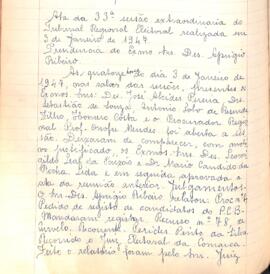 Ata da 33ª sessão extraordinaria do
Tribunal Regional Eleitoral realizada em
3 de Janeiro de 1947.
Presidencia do Exmo. Snr. Des. Aprigio
Ribeiro.
As quatorze do dia 3 de Janeiro de
1947, nas salas das sessões, presentes os
Exmos. Snrs. Des. José Alcides Pereira, Drs.
Sebastião de Souza, Antonio Soto de Rezende
Filho, Costa e o Procurador Regional
Prof. Onofre Mendes foi aberta a ses-
são. Deixaram de comparecer, com moti-
vo justificado, os Exmos. Snrs. Des. Leove-
gildo Leal da Paixão e Dr. Mario Candido da
Rocha. Lida e em seguida aprovada a
ata da reunião anterior. Julgamentos:
o Snr. Des. Aprigio Ribeiro relatou: Proc. nº
Pedido de registro de candidatos do P.C.B.
Mandaram registrar. Recurso nº 78, de
Recorrente: Pericles Pinto da Silva
Recorrido o Juiz Eleitoral da Comarca.
Feito o relatorio foram pelo Snr. Juiz